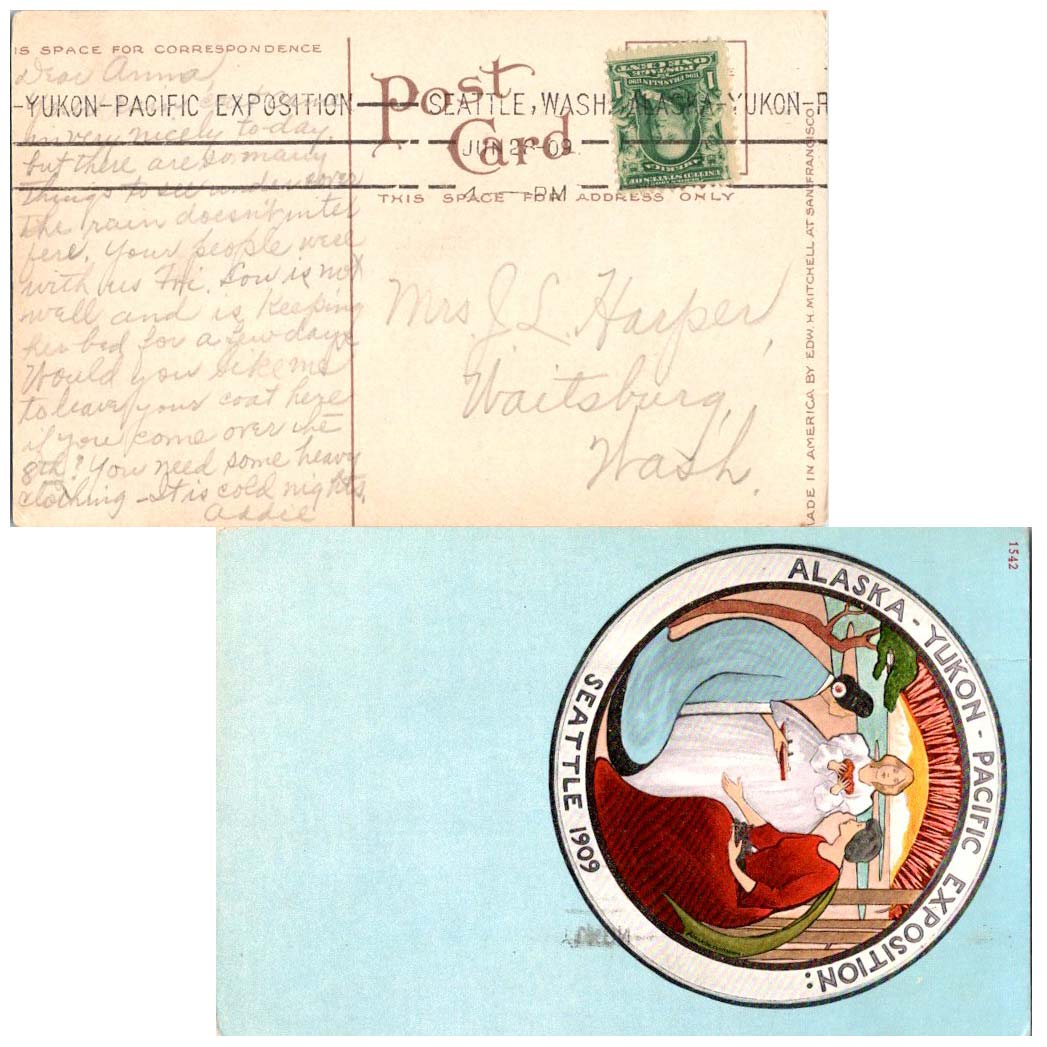 IS SPACE FOR CORRESPONDENCE
Dear Anna
-YUKON-PACIFIC EXPOSITION
SEATTLE, WASH. ALASKA-YUKON-P
him very nicely to-day,
but there are so many
things to see under cover
the rain doesn't inter
fere. Your people were
with us Fri. Lou is not
well and is keeping
her bed for a few days
Would you like me
to leave your coat here
if you come over the
8th? You need some heavy
clothing - It is cold nights.
Addie
Post
Card
JUN 28 09
4 - PM
THIS SPACE FOR ADDRESS ONLY
POSTAGE
ONE CENT
1
Mrs J. L. Harper,
Waitsburg,
Wash.
ADE IN AMERICA BY EDW. H. MITCHELL AT SAN FRANCISCO
1542
ALASKA - YUKON - PACIFIC EXPOSITION:
SEATTLE 1909